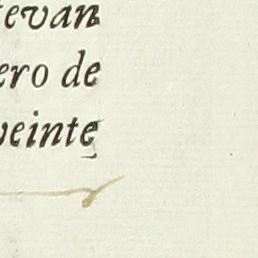 tevan
ero de
veinte